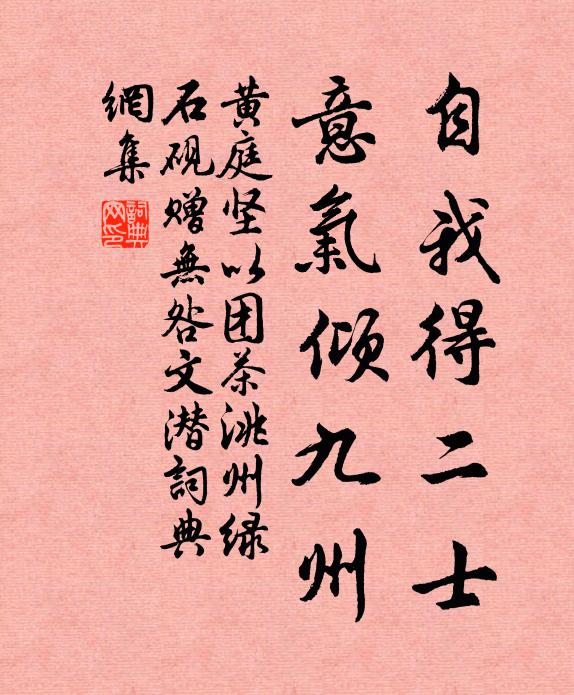 自我得二士
意氣傾九州
黄庭坚以团茶洮州绿
石砚赠無咎文潜詞典
網集
詞典網印